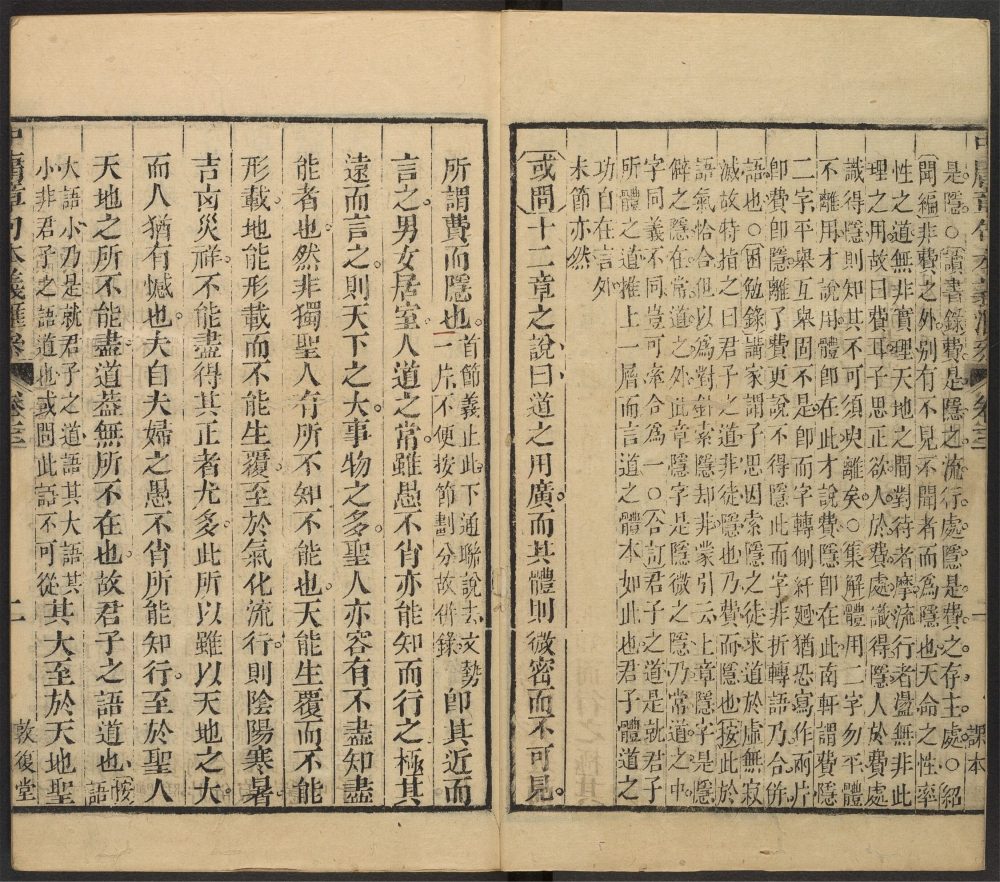 中庸章句本義滙參 卷三 二 課本
是隱○讀書錄費是隱之流行處隱是費之存主處○紹
聞編非費之外別有不見不聞者而爲隱也天命之性率
性之道無非實理天地之間對待者摩流行者盪無非此
理之用故曰費耳子思正欲人於費處識得隱人於費處
識得隱則知其不可須臾離矣○集解體用二字勿平體
不離用才說用體卽在此才說費隱卽在此南軒謂費隱
二字平舉互舉固不是卽而字轉側紆廻猶恐寫作兩片
卽費卽隱離了費更說不得隱此而字非折轉語乃合併
語也○困勉錄講家謂子思因索隱之徒求道於虛無寂
滅故特指之曰君子之道非徒隱也乃費而隱也按此於
語氣恰合但以爲對針索隱却非蒙引云上章隱字是隱
僻之隱在常道之外此章隱字是隱微之隱乃常道之中
字同義不同豈可牽合爲一○合訂君子之道是就君子
所體之道推上一層而言道之體本如此也君子體道之
功自在言外
末節亦然
或問十二章之說曰道之用廣而其體則微密而不可見
所謂費而隱也首節義止此下通聯說去文勢一片不便按節劃分故併錄卽其近而
言之男女居室人道之常雖愚不肖亦能知而行之極其
遠而言之則天下之大事物之多聖人亦容有不盡知盡
能者也然非獨聖人有所不知不能也天能生覆而不能
形載地能形載而不能生覆至於氣化流行則陰陽寒暑
吉凶災祥不能盡得其正者尤多此所以雖以天地之大
而人猶有憾也夫自夫婦之愚不肖所能知行至於聖人
天地之所不能盡道蓋無所不在也故君子之語道也按語
大語小乃是就君子之道語其大語其小非君子之語道也或問此語不可從其大至於天地聖
中庸章句本義滙參 卷三 二 敦復堂